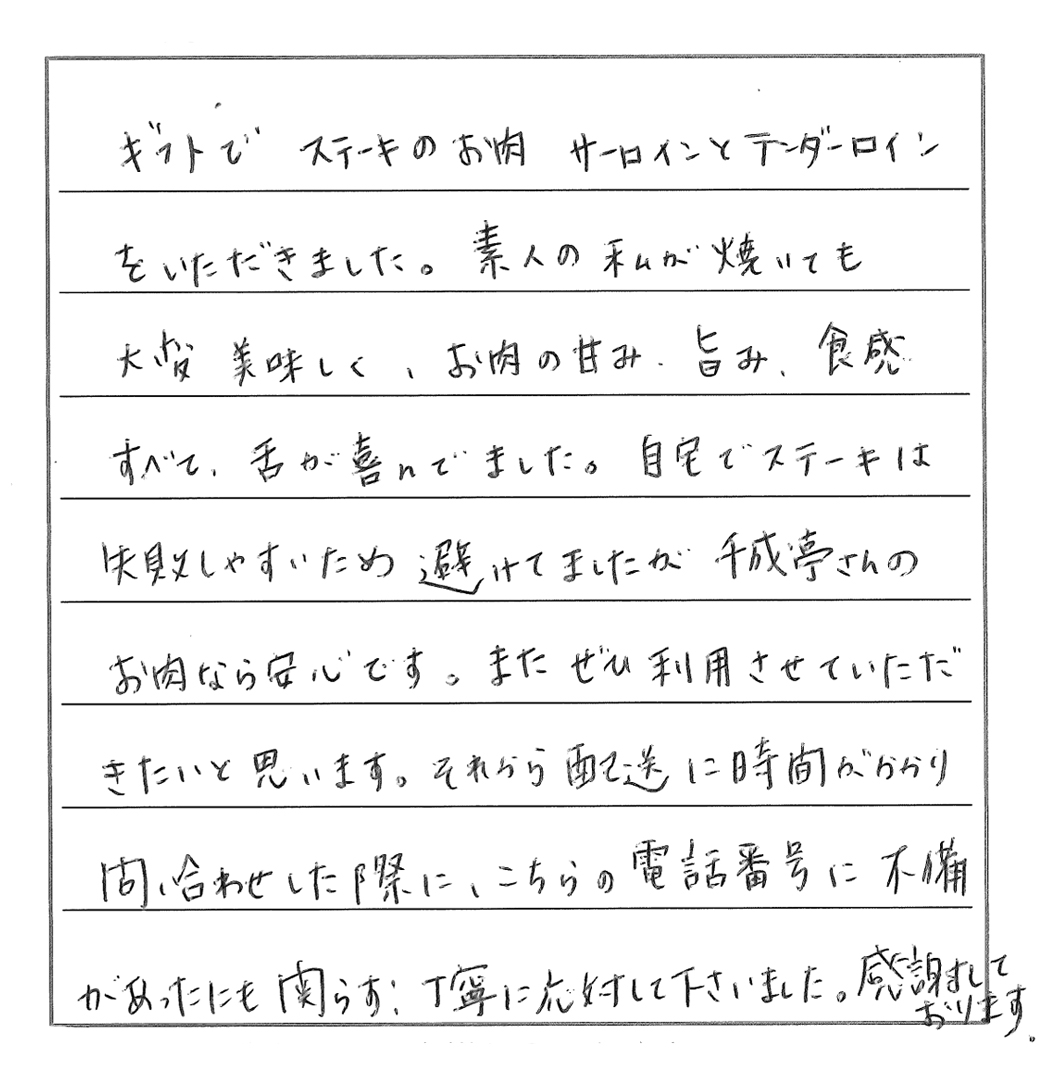 ギフトで ステーキのお肉 サーロインとテンダーロイン
をいただきました。素人の私が焼いても
大変 美味しく、お肉の甘み、旨み、食感
すべて、舌が喜んでました。自宅でステーキは
失敗しやすいため避けてましたが 千成亭さんの
お肉なら安心です。またぜひ利用させていただ
きたいと思います。それから配送に時間がかかり
問い合わせした際に、こちらの電話番号に不備
があったにも関らず、丁寧に応対して下さいました。感謝して
おります。